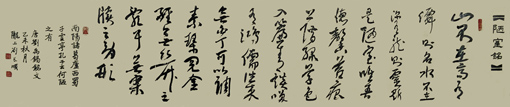 【陋室銘】
山不在高有
僊則名水不在
深有龍則靈斯
是陋室唯吾
德馨苔痕
上階綠草色
入簾青談笑
有鴻儒往來
無白丁可以調
素琴閱金
經無絲竹之
亂耳無案
牘之勞形
南陽諸葛廬西蜀
子雲亭孔子云何陋
之有
唐劉禹錫銘文
乙未秋月